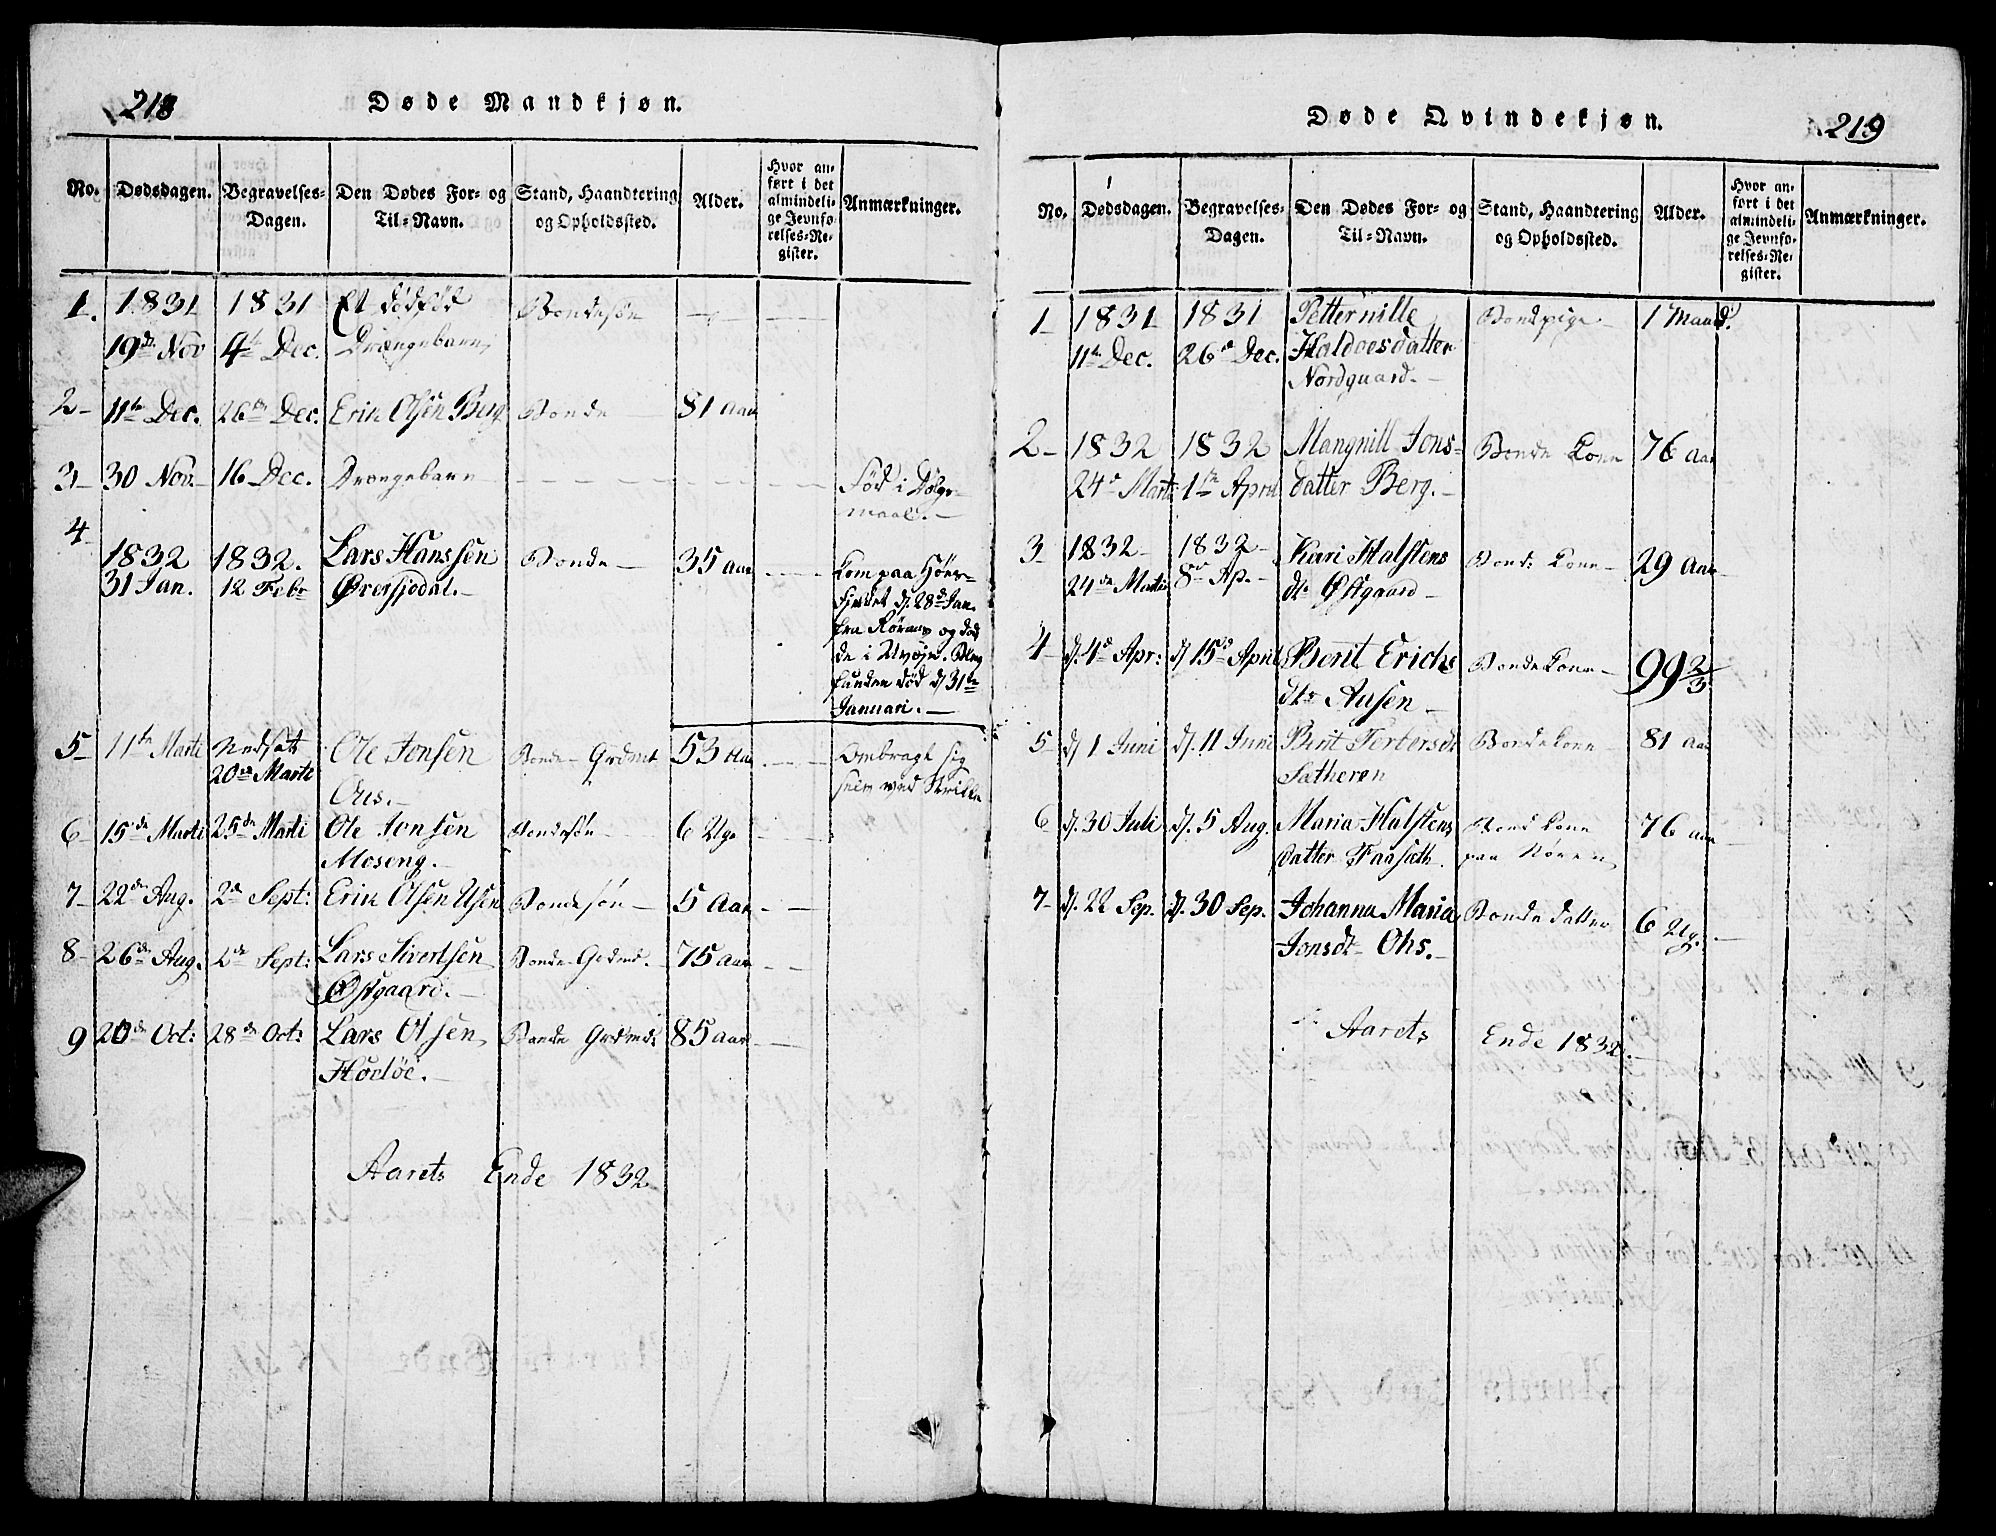 218
Døde Mandkjøn.
No. Dødsdagen. Begravelses-Dagen. Den Dødes For- og Til-Navn. Stand, Haandtering og Opholdssted. Alder. Hvor anført i det almindelige Jevnførelses-Register. Anmærkninger.
1. 1831 1831 Et dødfød Bondesøn
19de Nov 4de Dec. Drængebarn
2 11te Dec. 26de Dec. Erik Olsen Berg Bonde 81 Aar
3 30 Nov. 16 Dec. Drængebarn Fød i Dølgs-
maal.
4
1832 1832. Lars Hanssen Bonde 35 Aar
31 Jan. 12 Febr Øversjødal. Kom paa
d. 28de Jan.
fra Røraas og død
de i Blev
funden død d. 31te
Januari.
5 11te Marti Nedsat Ole Jonsen Bonde Grdmd 53 Aar Ombragt sig
20de Marti Aas. selv ved
6 15de Marti 25de Marti Ole Jonsen Bondesøn 6 Uge
Moseng.
7 22de Aug. 2de Sept: Erik Olsen Usen Bondesøn 5 Aar
8 26de Aug. 2de Sept: Lars Sivertsen Bonde Grdmd. 75 Aar
Østgaard.
9 20de Oct: 28de Oct: Lars Olsen Bonde Grdmd: 85 Aar
Hodløe.
Aarets Ende 1832
Døde Qvindekjøn.
219
No. Dødsdagen. Begravelses-Dagen. Den Dødes For- og Til-Navn. Stand, Haandtering og Opholdssted. Alder. Hvor anført i det almindelige Jevnførelses-Register. Anmærkninger.
1 1831 1831 Petternille Bondepige 1 Maaned.
11te Dec. 26de Dec. Haldoesdatter
Nordgaard.
2 1832 1832 Mangnill Jons- Bonde Kone 76 Aar
24de Marti 1te April datter Berg.
3 1832 1832 Kari Halstens Bonde Kone 29 Aar
24de Martii 8de Ap. dtr Østgaard
4 d. 4de Apr: d 15de April Berit Erichs Bonde Kone 99 2/3
dtr Aasen
5 d 1 Juni d. 11 Juni Berit Bonde Kone 81 Aar
Sætheren
6 d. 30 Juli d. 5 Aug. Maria Halstens Bonde Kone 76 Aar
datter Faasæth. paa
7 d. 22 Sep. d. 30 Sep. Johanna Maria Bonde datter 6 Ug.
Jonsdt Ohs.
Aarets Ende 1832.